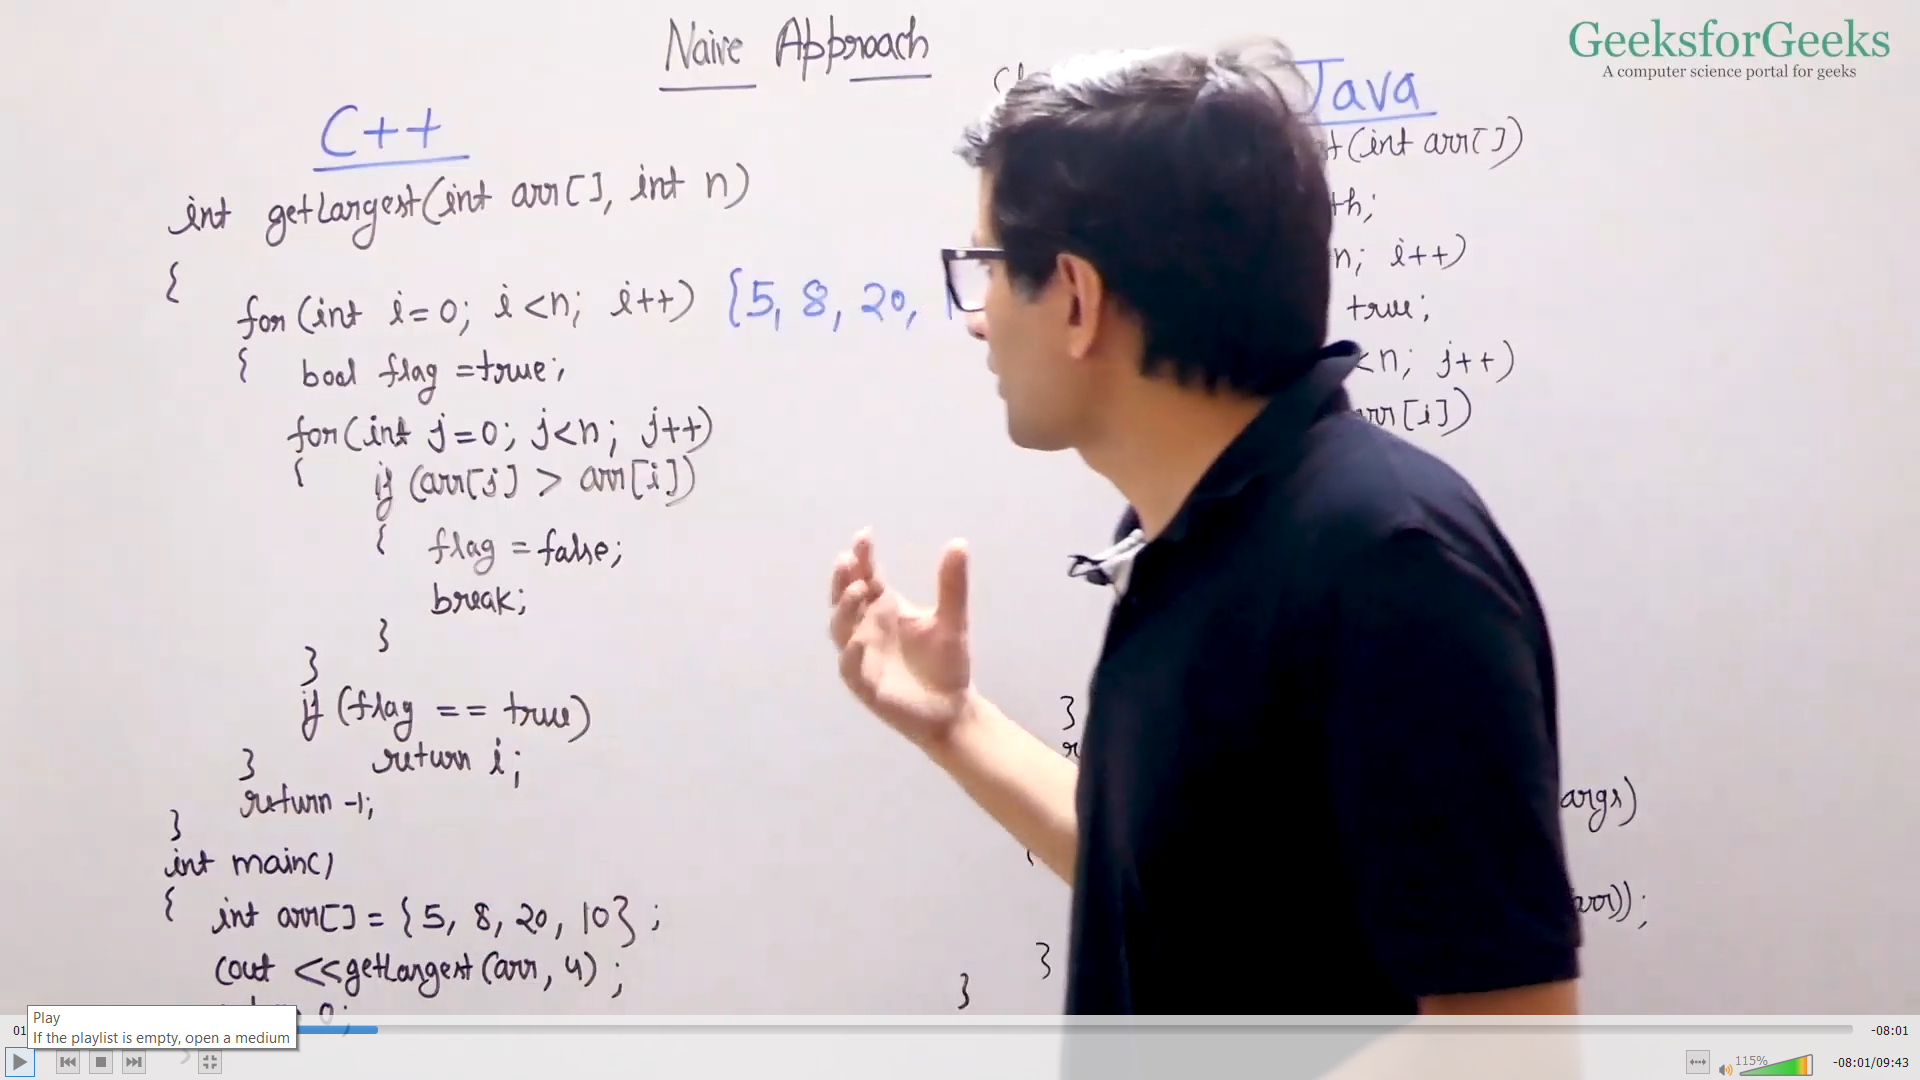 Naive Approach
GeeksforGeeks
A computer science portal for geeks
C++
int getLargest(int arr[], int n)
{
for(int i=0; i<n; i++) {5, 8, 20,
{ bool flag =true;
for(int j=0; j<n; j++)
{ if (arr[j] > arr[i])
{ flag = false;
break;
}
}
if (flag == true)
} return i;
return -1;
}
int main()
{ int arr[] = {5, 8, 20, 10} ;
cout <<getLargest(arr, 4) ;
0;
Java
(int arr[])
th;
n; i++)
true;
<n; j++)
arr[i])
}
args)
arr));
}
}
Play
If the playlist is empty, open a medium
01
-08:01
115%
-08:01/09:43